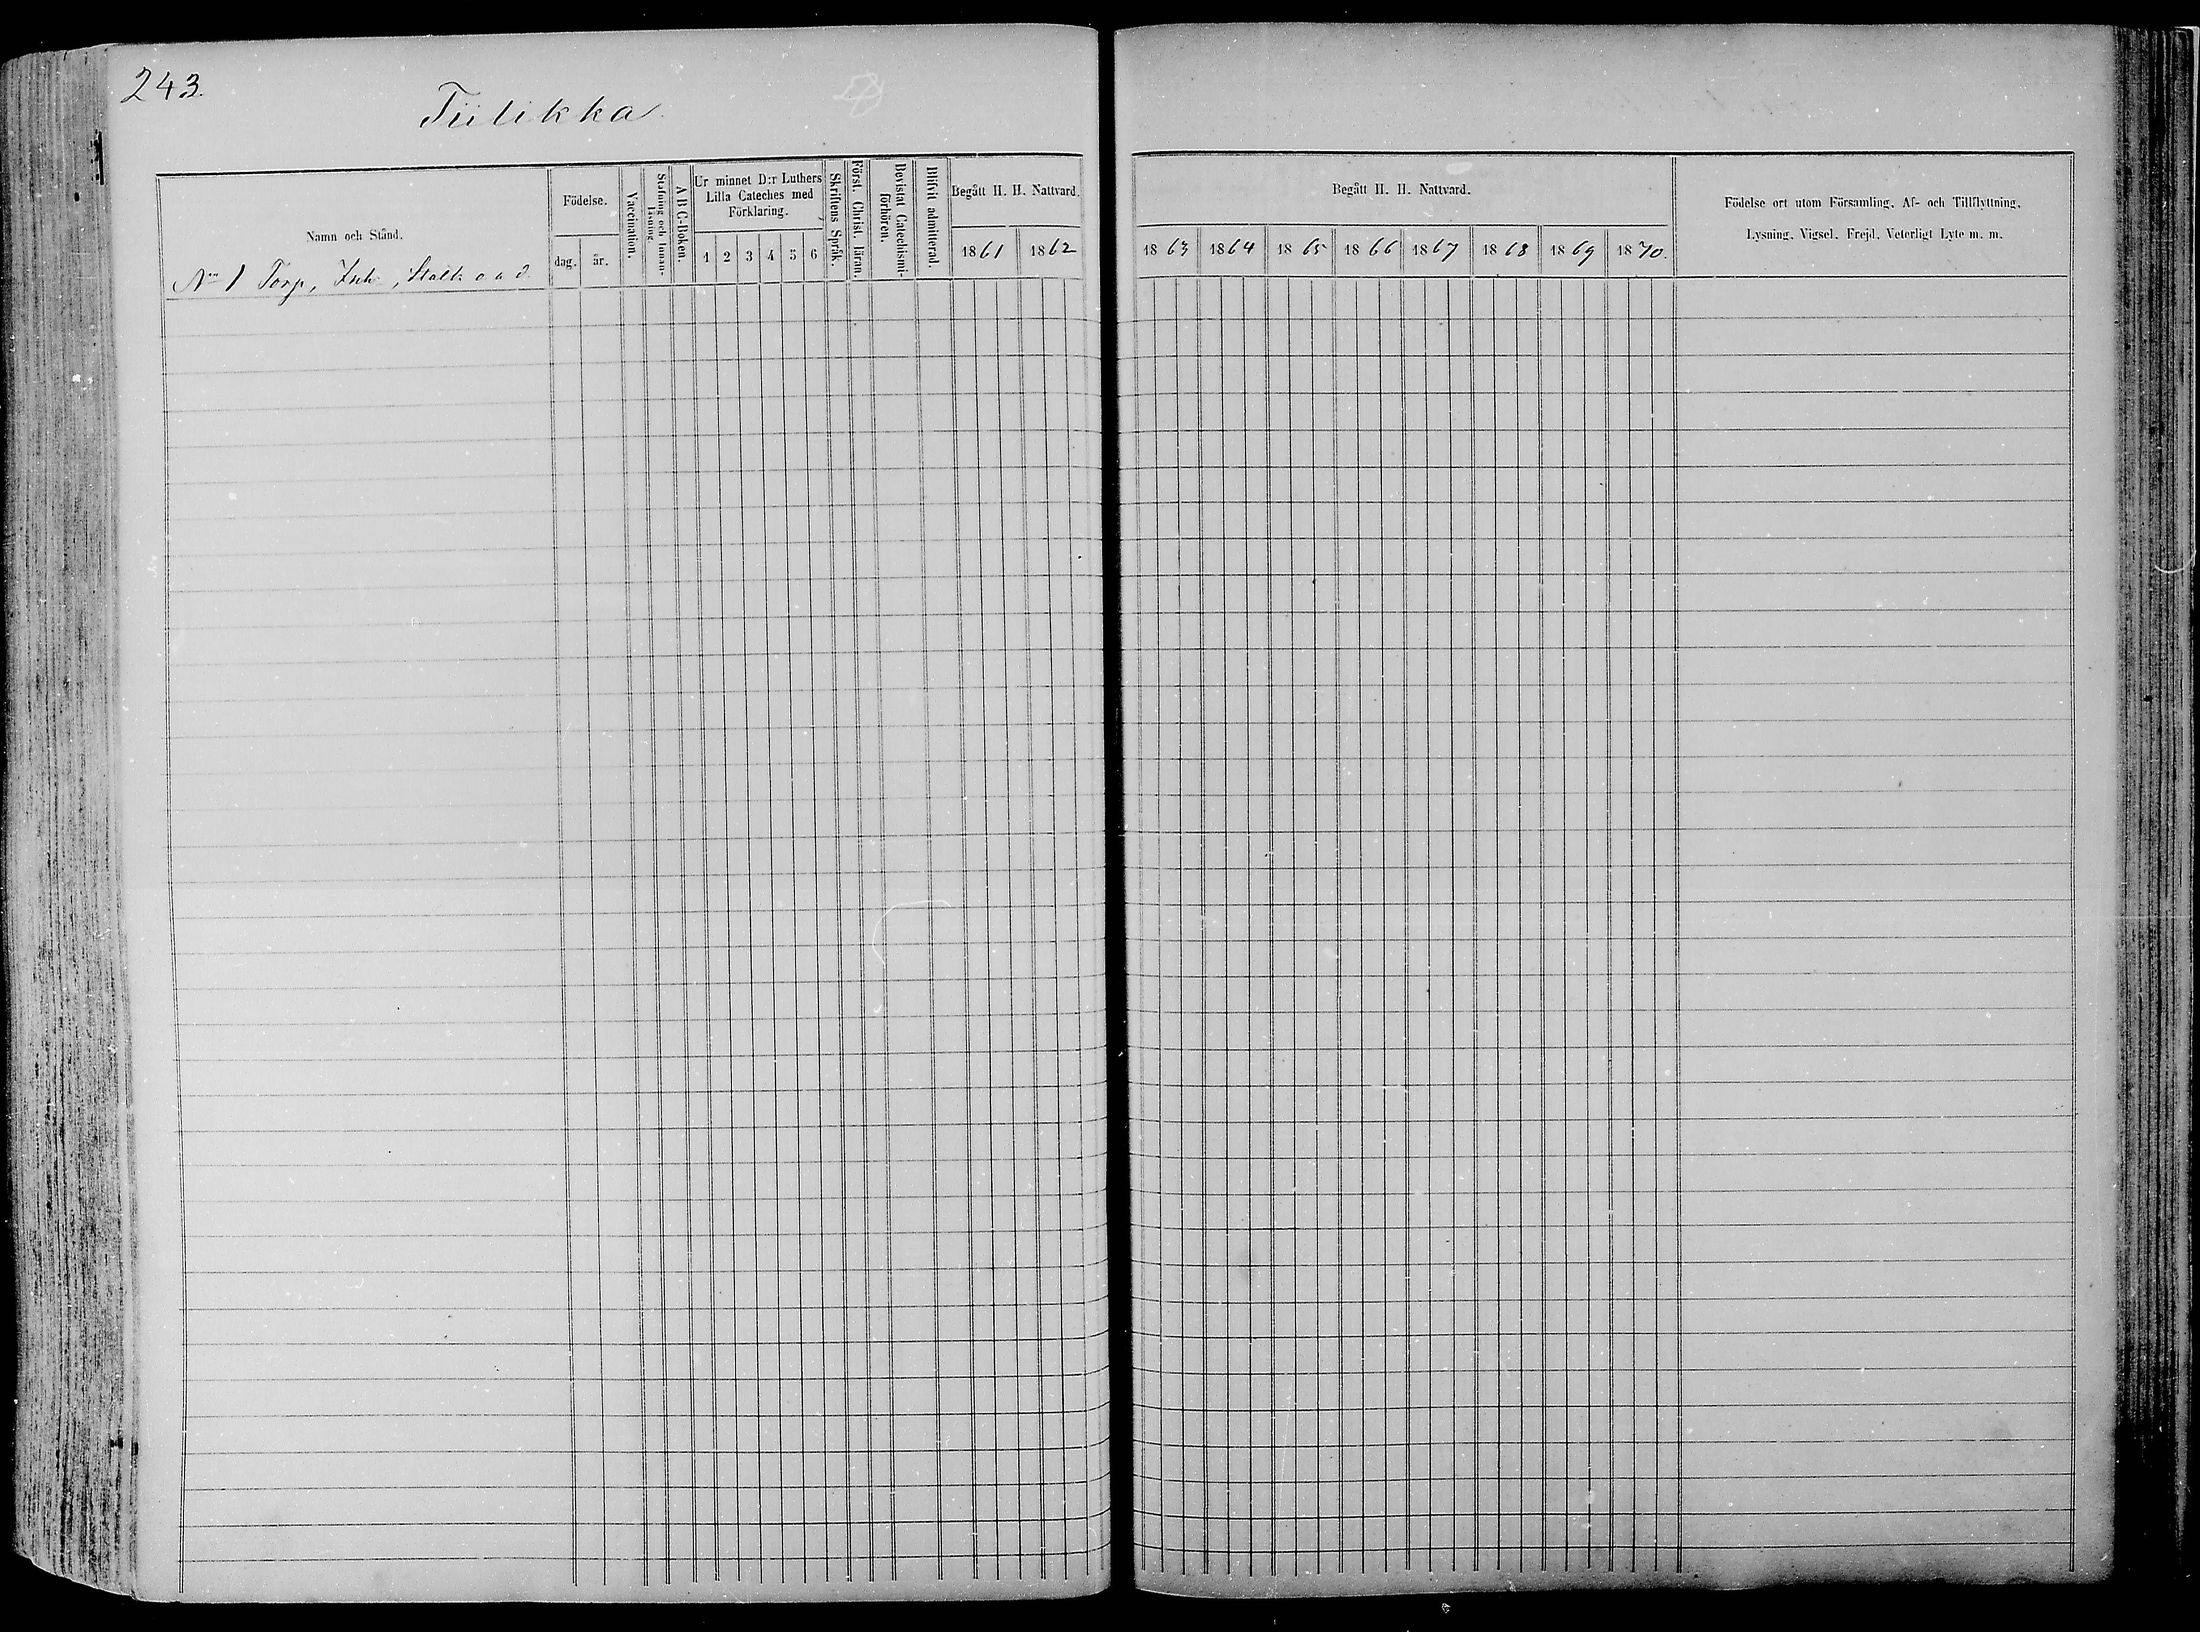 243.
Tiilikka
Namn och Stånd.
No 1 Torp, Inh., Stattk. o. a. d.
Födelse.
dag.
år.
Vaccination.
Stafning och Innanläsning
A B C-Boken.
Ur minnet D:r Luthers
Lilla Cateches med
Förklaring.
1 2 3 4 5 6
Skriftens Språk.
Först. Christ. läran.
Bevistat Catechismi-
förhören.
Blifvit admitterad.
Begått H. H. Nattvard.
1861 1862
Begått H. H. Nattvard.
1863 1864 1865 1866 1867 1868 1869 1870.
Födelse ort utom Församling, Af- och Tillflyttning,
Lysning, Vigsel, Frejd, Veterligt Lyte m. m.